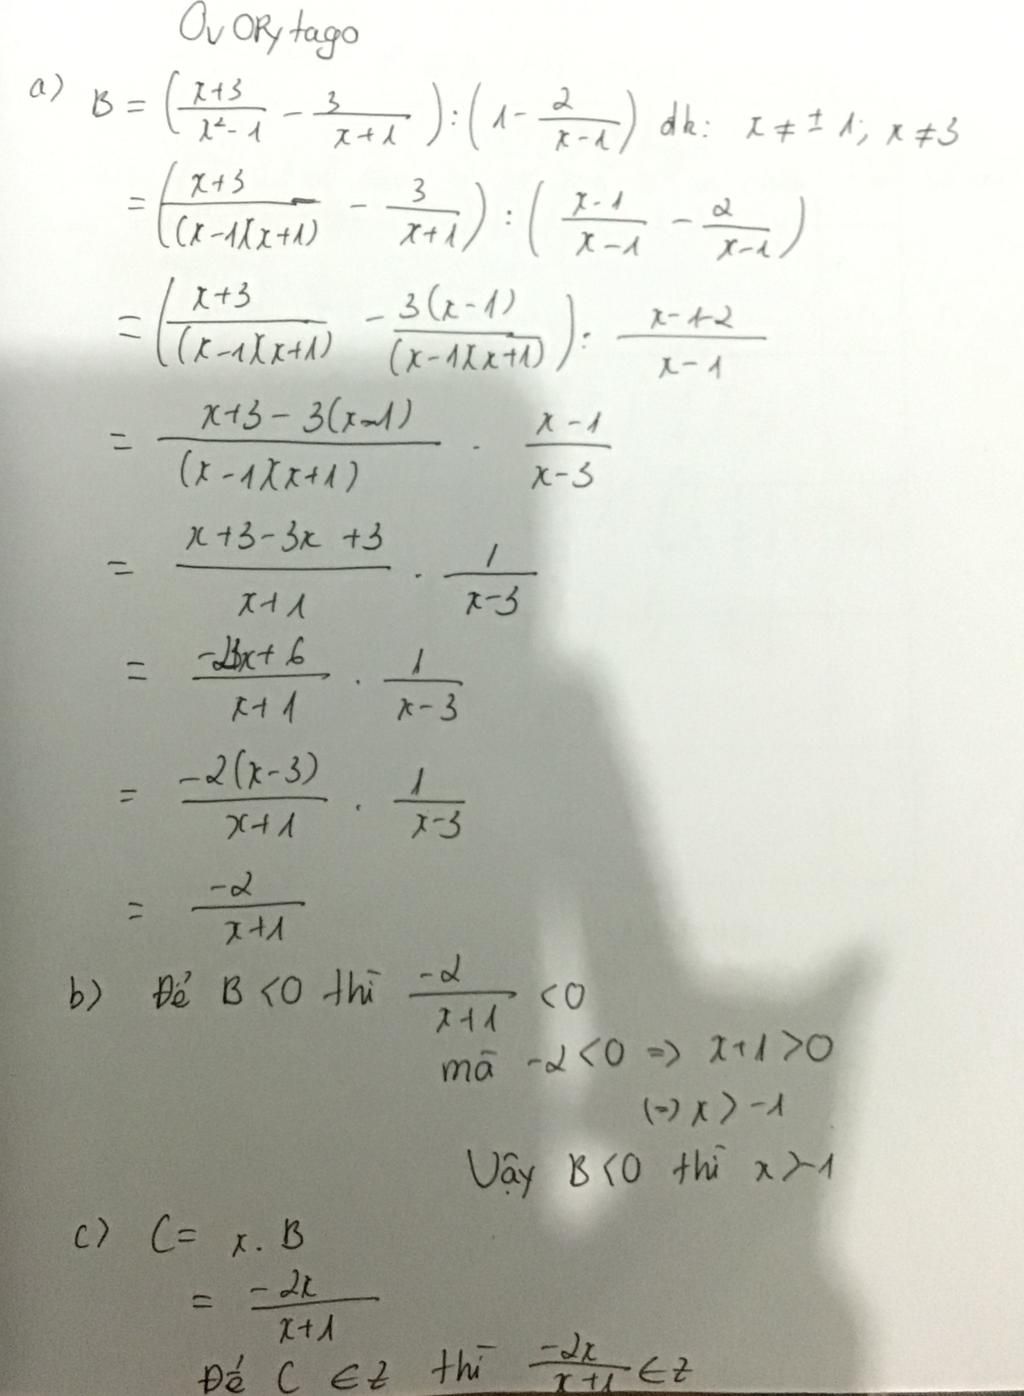 OvORytago
a) B = (x+3/x²-1 - 3/x+1) : (1 - 2/x-1) dk: x ≠ ± 1; x ≠ 3
= (x+3/(x-1)(x+1) - 3/x+1) : (x-1/x-1 - 2/x-1)
= (x+3/(x-1)(x+1) - 3(x-1)/(x-1)(x+1)) : x-1-2/x-1
= x+3-3(x-1)/(x-1)(x+1) . x-1/x-3
= x+3-3x+3/x+1 . 1/x-3
= -2x+6/x+1 . 1/x-3
= -2(x-3)/x+1 . 1/x-3
= -2/x+1
b) Để B <0 thì -2/x+1 <0
mà -2<0 => x+1>0
(=) x > -1
Vậy B<0 thì x>-1
c) C = x. B
= -2x/x+1
Để C ∈ Z thì -2x/x+1 ∈ Z